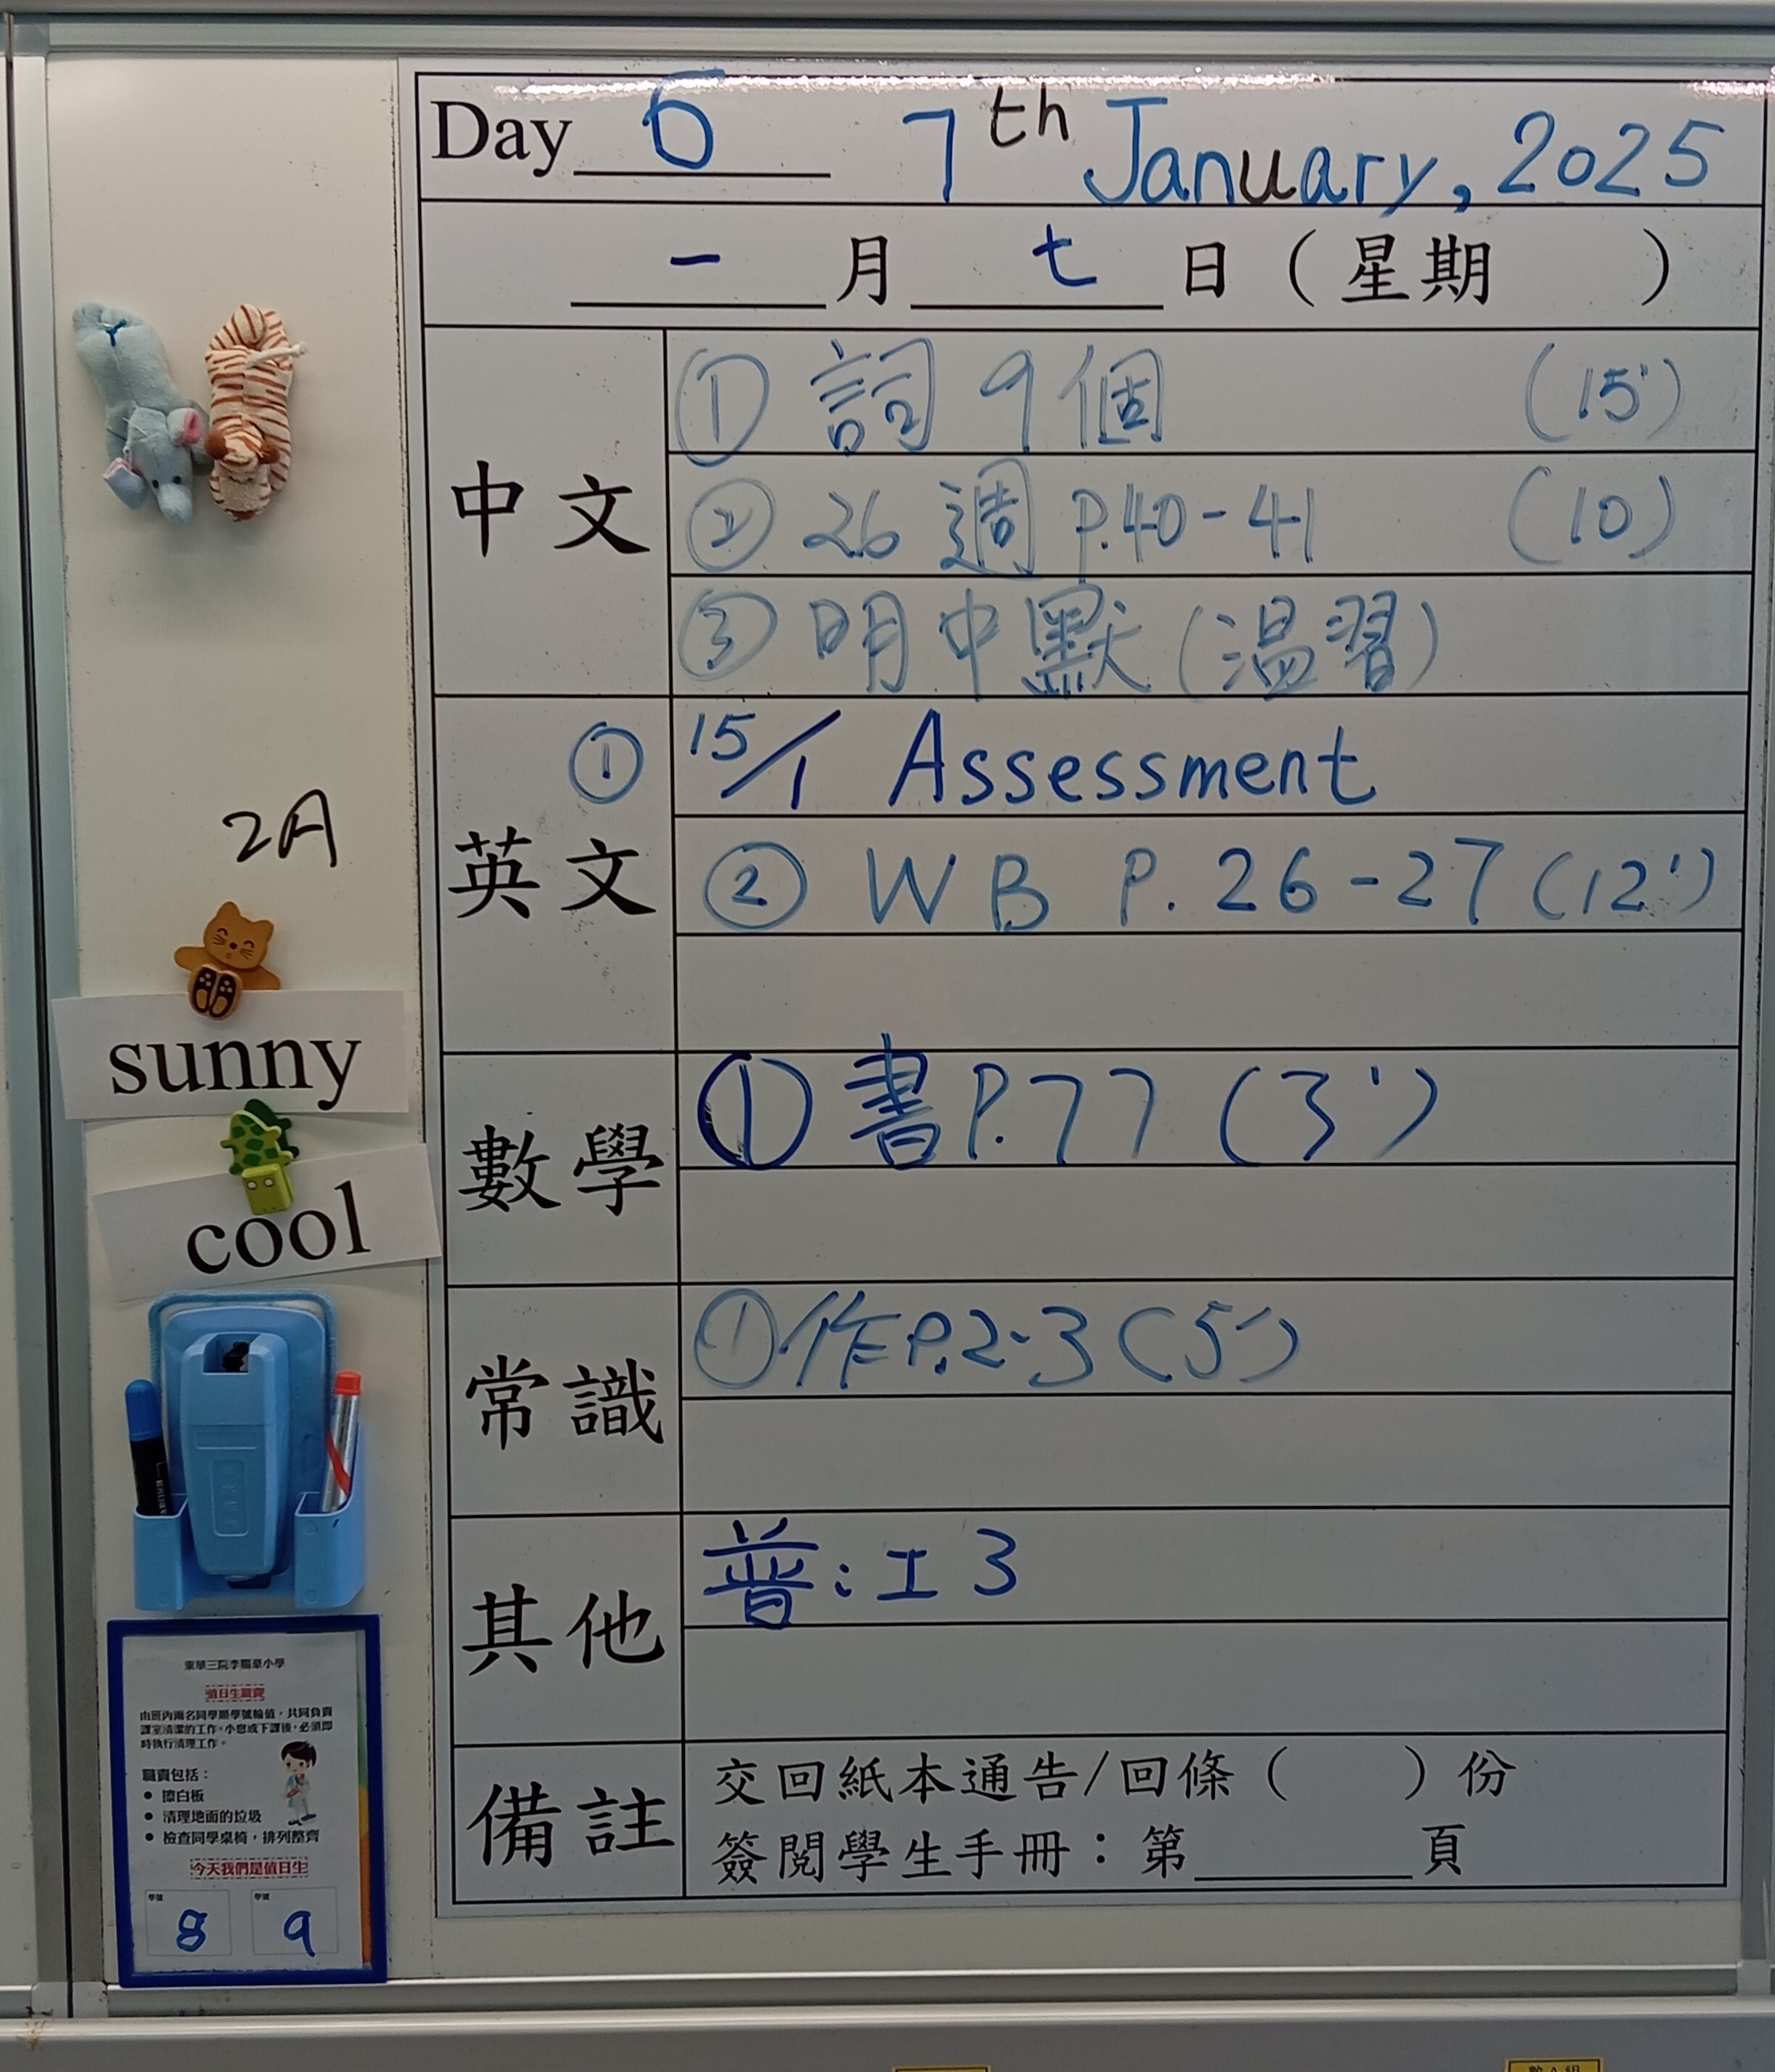 Day 6 7th January, 2025
一 月 七 日 ( 星期 )
中文
① 詞 9 個 (15')
② 26 週 P.40-41 (10)
③ 明中默 (温習)
英文
① 15/1 Assessment
② WB P.26-27 (12')
數學
① 書 P.77 (3')
常識
① 作 P.2-3 (5')
其他
普:工3
備註
交回紙本通告/回條( )份
簽閱學生手冊:第 頁
2A
sunny
cool
值日生職責
由班內兩名同學順學號輪值,共同負責
課室清潔的工作。小息或下課後,必須即
時執行清理工作。
職責包括:
• 擦白板
• 清理地面的垃圾
• 檢查同學桌椅,排列整齊
今天我們是值日生
學號 學號
8 9